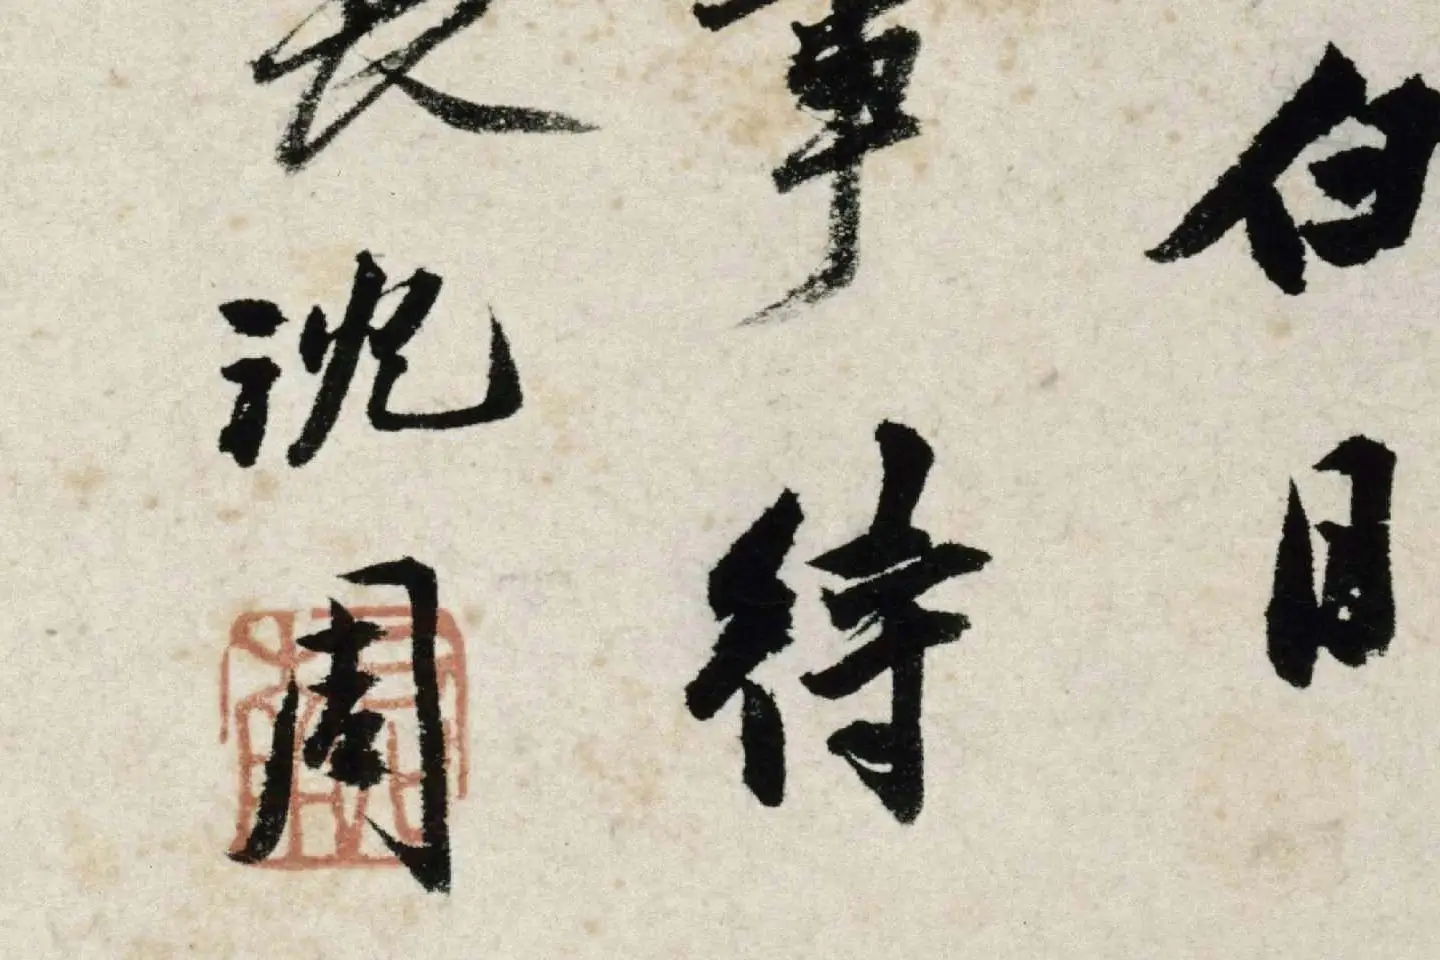 白日
事待
長沈周